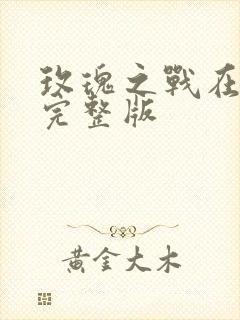 玫瑰之戰在
完整版
黃金大木